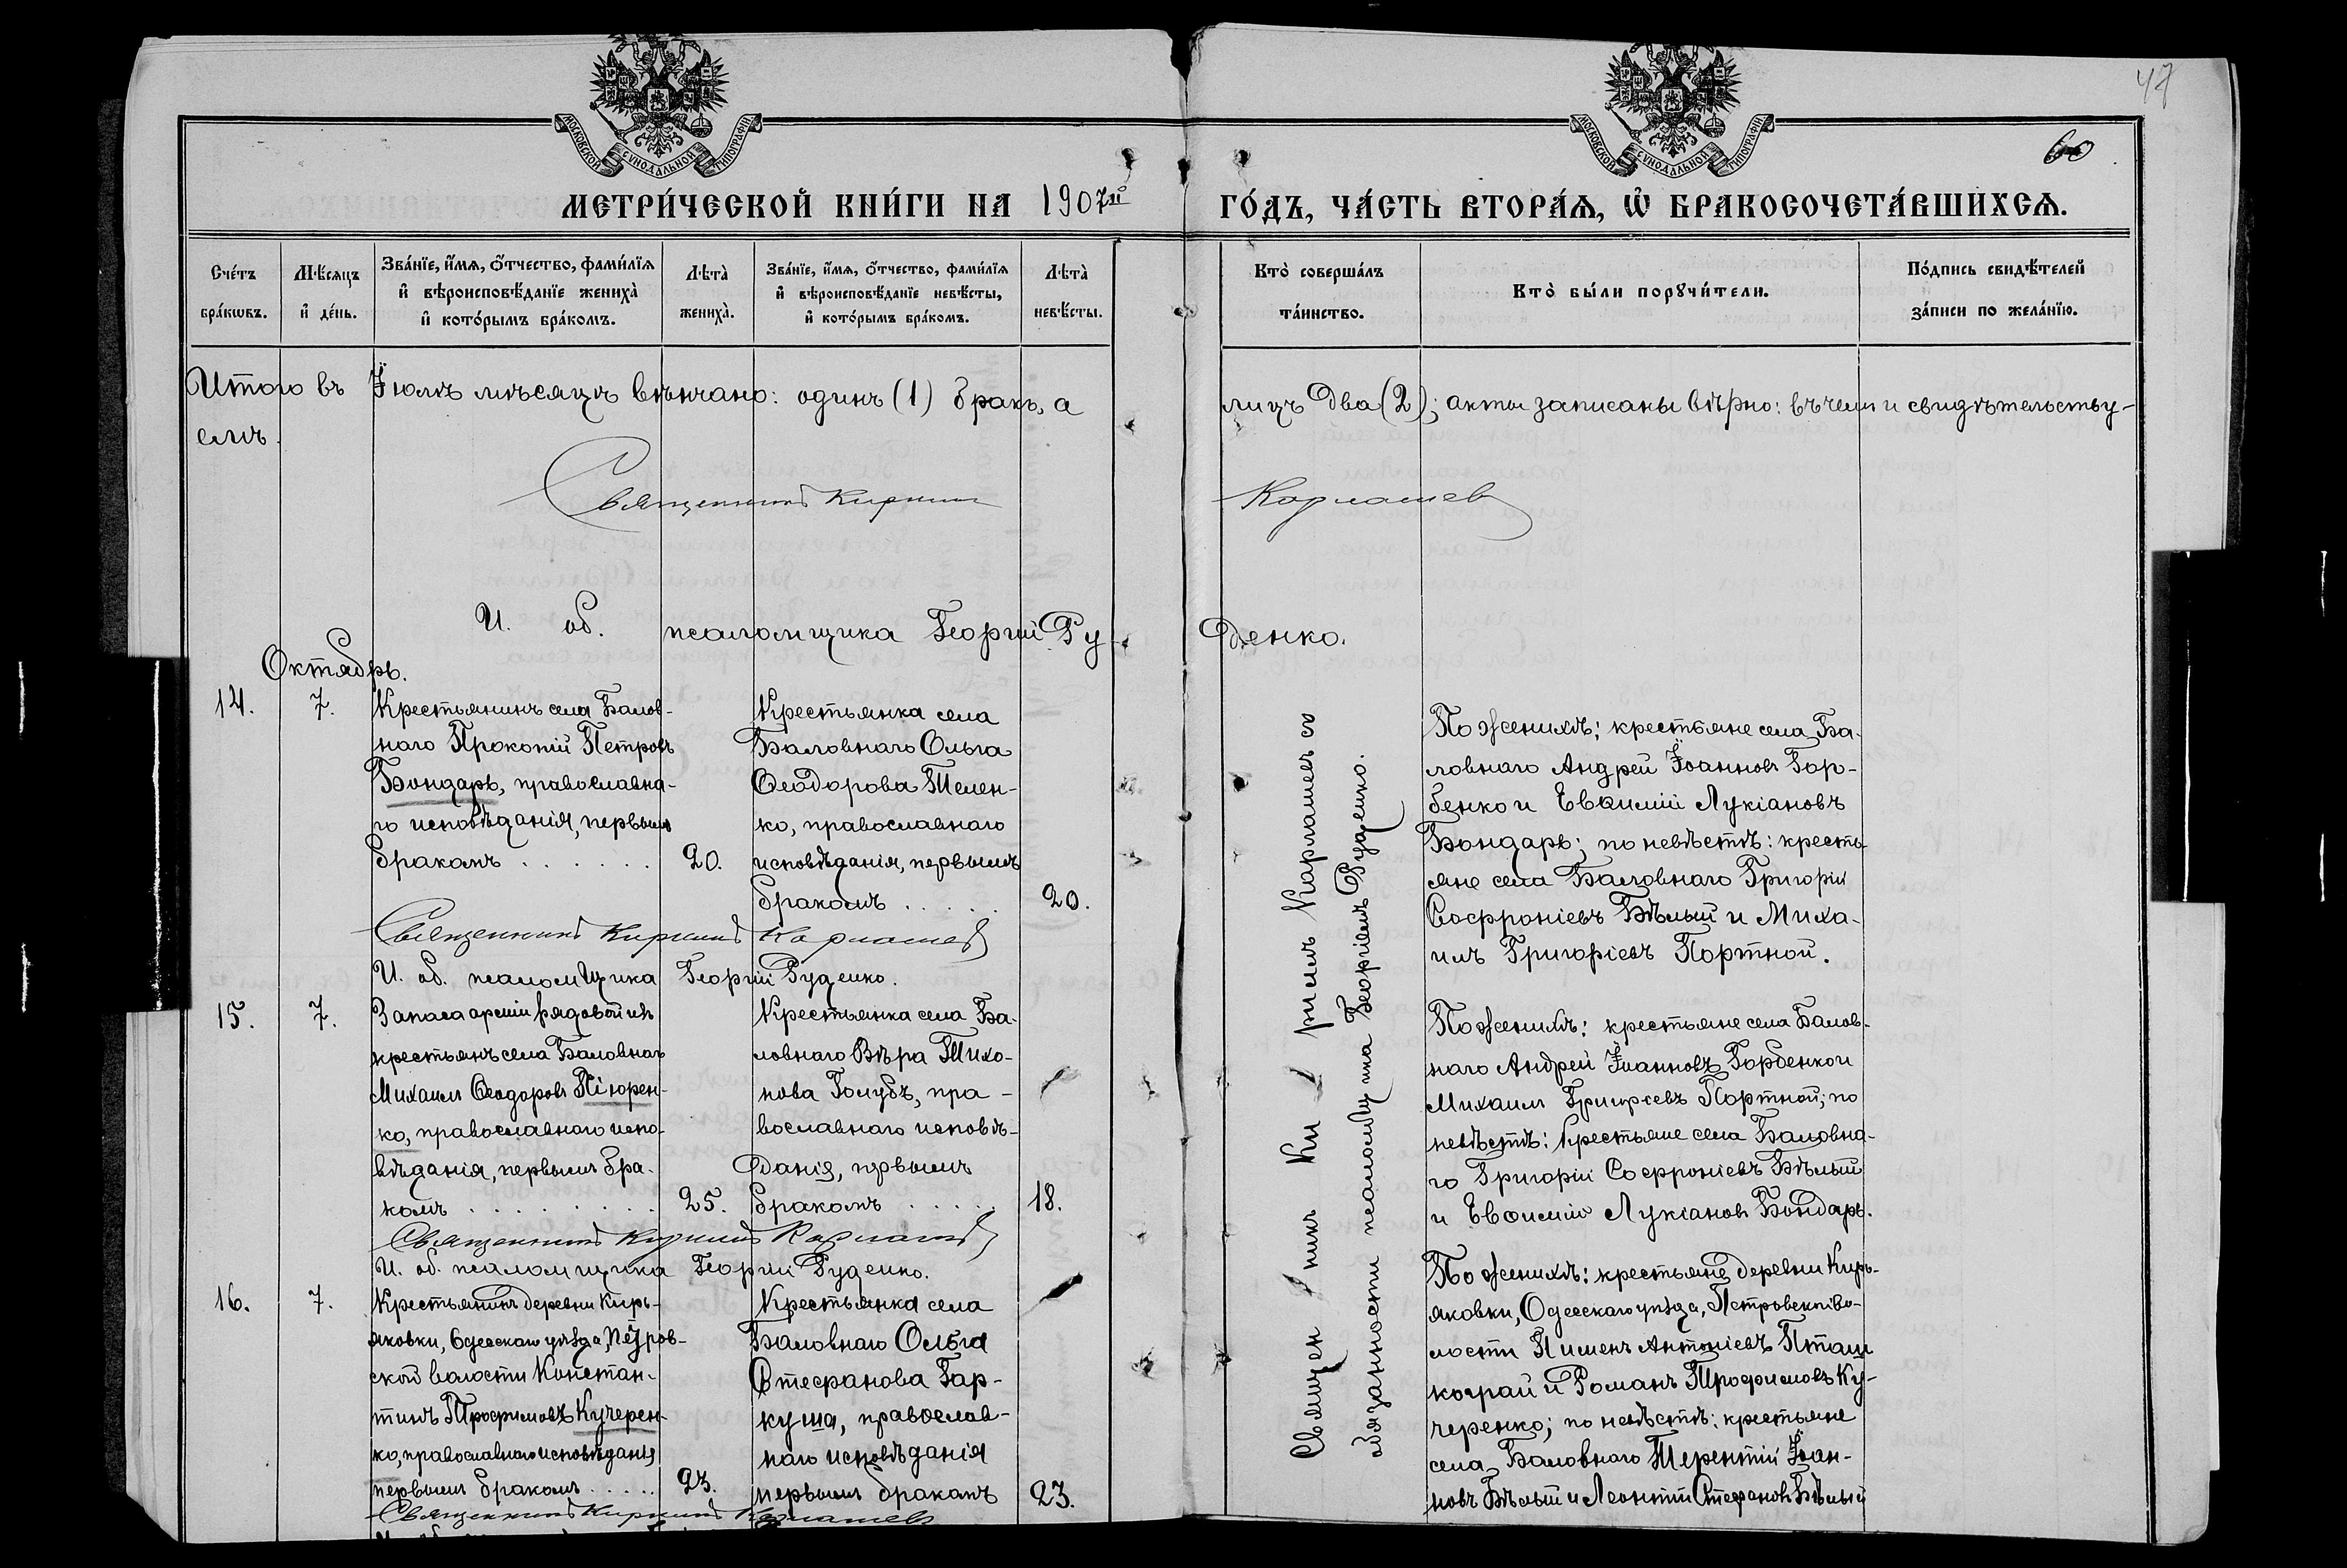 47
60
МОСКОВСКОЙ СѴНОДАЛЬНОЙ ТИПОГРАФІИ
МОСКОВСКОЙ СѴНОДАЛЬНОЙ ТИПОГРАФІИ
МЕТРИ́ЧЕСКОЙ КНИ́ГИ НА 1907й ГО́ДЪ, ЧА́СТЬ ВТОРА́Ѧ, Ѽ БРАКОСОЧЕТА́ВШИХСѦ.
Сче́тъ бра́кѡвъ.
Мѣ́сяцъ и҆ де́нь.
Зва́нїе, и҆́мѧ, ѻ҆́тчество, фами́лїѧ и҆ вѣроисповѣ́данїе женихà и҆ кото́рымъ бра́комъ.
Лѣ́та женихà.
Зва́нїе, и҆́мѧ, ѻ҆́тчество, фами́лїѧ и҆ вѣроисповѣ́данїе невѣ́сты, и҆ кото́рымъ бра́комъ.
Лѣ́та невѣ́сты.
Кто̀ соверша́лъ та́инство.
Кто̀ бы́ли порꙋчи́тели.
По́дпись свидѣ́телей за́писи по жела́нїю.
Итого въ Іюлѣ мѣсяцѣ вѣнчано: одинъ (1) бракъ, а лицъ два (2); акты записаны вѣрно: въ чемъ и свидѣтельству-
емъ.
Священникъ Кириллъ Карлашевъ
И. об. псаломщика Георгій Руденко.
Октябрь.
14.
7.
Крестьянинъ села Балов-
наго Прокопій Петровъ
Бондарь, православна-
го исповѣданія, первымъ
бракомъ . . . . . .
20.
Крестьянка села
Баловнаго Ольга
Ѳеодорова Телен-
ко, православнаго
исповѣданія, первымъ
бракомъ . . . . .
20.
Священникъ Кириллъ Карлашевъ
И. об. псаломщика Георгій Руденко.
По женихѣ: крестьяне села Ба-
ловнаго Андрей Іоанновъ Гор-
бенко и Евѳимій Лукіановъ
Бондарь; по невѣстѣ: кресть-
яне села Баловнаго Григорій
Софроніевъ Бѣлый и Миха-
илъ Григоріевъ Портной.
15.
7.
Запаса арміи рядовой изъ
крестьянъ села Баловнаго
Михаилъ Ѳеодоровъ Пиюрен-
ко, православнаго испо-
вѣданія, первымъ бра-
комъ . . . . . . . . .
25.
Крестьянка села Ба-
ловнаго Вѣра Тихо-
нова Голубъ, пра-
вославнаго исповѣ-
данія, первымъ
бракомъ . . . . .
18.
Священникъ Кириллъ Карлашевъ
И. об. псаломщика Георгій Руденко.
По женихѣ: крестьяне села Балов-
наго Андрей Іоанновъ Горбенко и
Михаилъ Григоріевъ Портной; по
невѣстѣ: крестьяне села Баловна-
го Григорій Софроніевъ Бѣлый
и Евѳимій Лукіановъ Бондарь.
16.
7.
Крестьянинъ деревни Кирь-
яковки, Одесскаго уѣзда, Петров-
ской волости Констан-
тинъ Трофимовъ Кучерен-
ко, православнаго исповѣданія
первымъ бракомъ . . . . .
23.
Крестьянка села
Баловнаго Ольга
Стефанова Гар-
куша, православ-
наго исповѣданія
первымъ бракомъ
23.
Священникъ Кириллъ Карлашевъ
По женихѣ: крестьяне деревни Кирь-
яковки, Одесскаго уѣзда, Петровской во-
лости Пименъ Антоніевъ Пташ-
кограй и Романъ Трофимовъ Ку-
черенко; по невѣстѣ: крестьяне
села Баловнаго Терентій Іоан-
новъ Бѣлый и Леонтій Стефановъ Бѣлый
Священникъ Кириллъ Карлашевъ съ
обязанности псаломщика Георгіемъ Руденко.